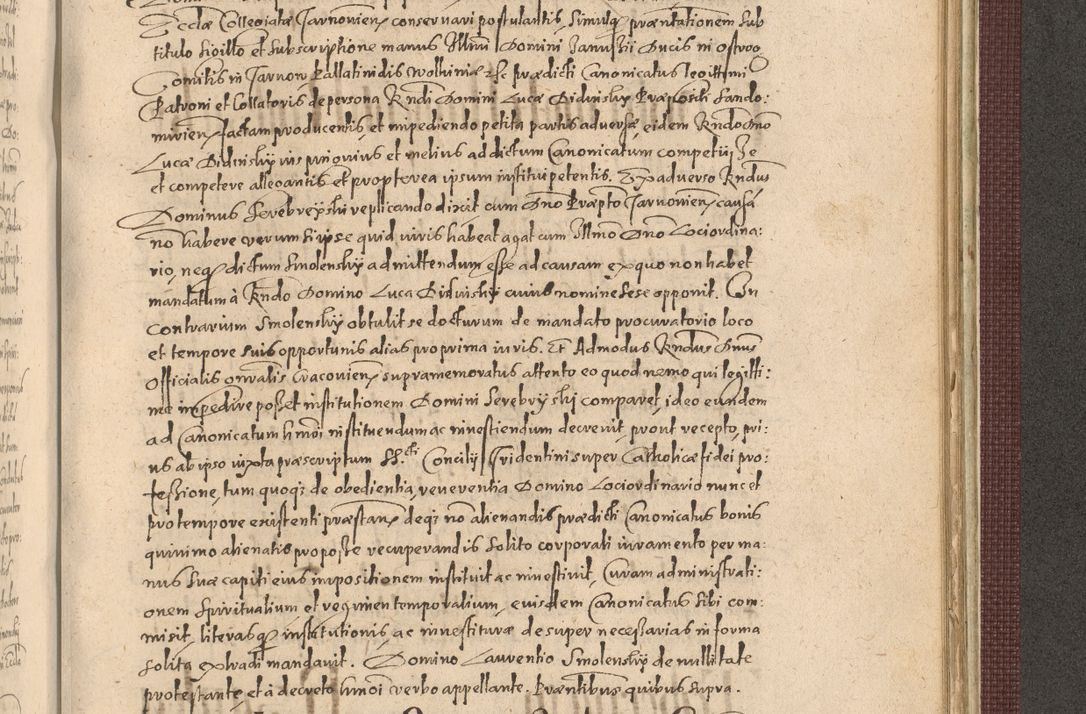 Ecclæ Collegiatæ Tarnovien conservari postulantis, Simulq præntationem sub
titulo sigillo et subscriptione manus Illmi Domini Janussii Ducis in ostrog
Comitis in Tarnow Pallatinidis Wolhiniæ etc prædicti Canonicatus legittimi
Patroni et Collatoris de persona Rndi Domini Lucæ Bidvinsky Præpositi Sando:
mirien, factam producentis et impediendo petita partis adversæ, eidem Rndo Dno
Lucæ Bidvinsky ius pinguius et melius ad dictum Canonicatum competiisse
et competere allegantis et propterea ipsum institui petentis. Ex adverso Rndus
Dominus Serebreyski replicando dixit cum Dno Præpto Tarnovien causã
nõ habere verum si ipse quid iuris habeat agat cum Illmo Dno Lociordina:
rio, neq dictum Smolensky admittendum esse ad causam ex quo non habet
mandatum à Rndo Domino Luca Bidvisky cuius nomine sese opponit. In
Contrarium Smolensky obtulit se docturum de mandato procuratorio loco
et tempore suis opportunis alias pro prima iuris. Et Admodus Rndus Dnus
Officialis gnralis Cracovien supramemoratus attento eo quod nemo qui legitti:
me impedire posset institutionem Domini Serebryski comparet, ideo eundem
ad Canonicatum hmõi instituendum ac investiendum decrevit, prout recepto, pri:
us ab ipso iuxta præscriptum SS.cti Concilij Tridentini super Catholicæ fidei pro:
fessione, tum quoq; de obedientia, reverentia Domino Lociordinario nunc et
pro tempore existenti præstan, deq; nõ alienandis prædicti Canonicatus bonis
quinimo alienatis proposse recuperandis solito corporali iuramento per ma:
nus suæ capiti eius impositionem instituit ac investivit, Curam administrati:
onem spiritualium et regimen temporalium, eiusdem Canonicatus sibi com:
misit, literasq institutionis, ac investituræ desuper necessarias in forma
solita extradi mandavit. Domino Laurentio Smolensky de nullitate
protestante, et à decreto hmoi verbo appellante. Præntibus quibus supra.